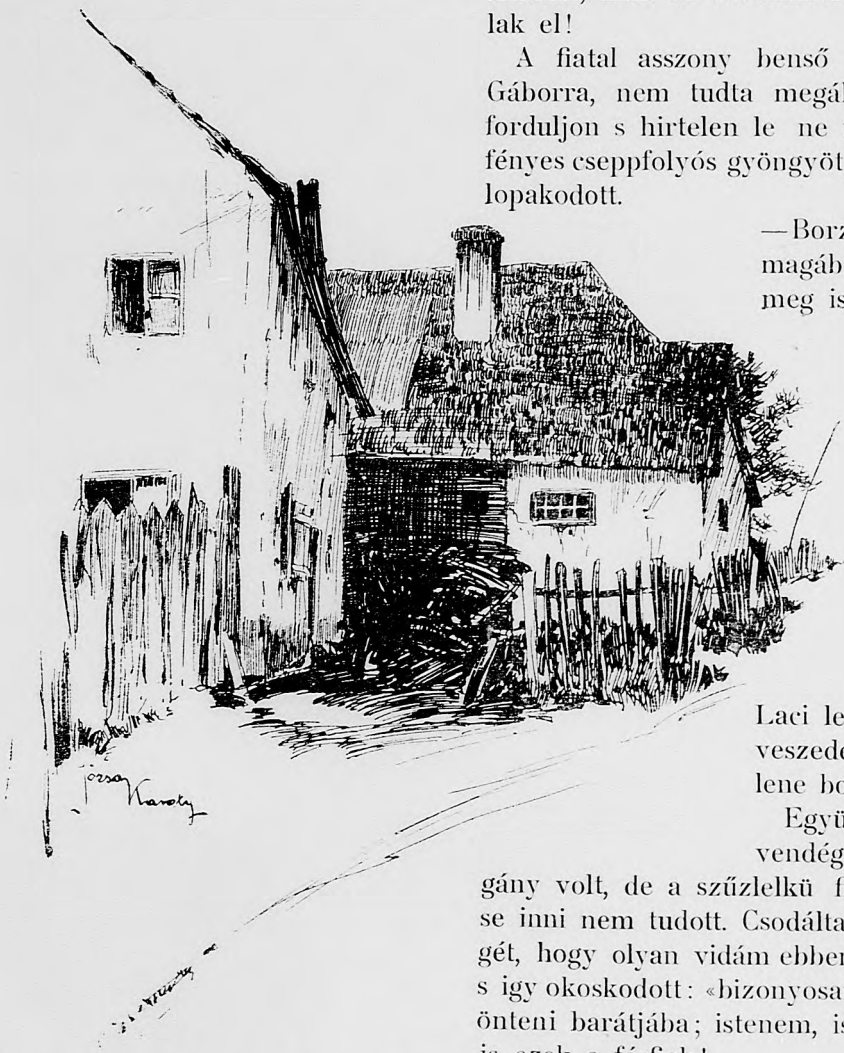 lak el!
A fiatal asszony benső
Gáborra, nem tudta megál
forduljon s hirtelen le ne
fényes cseppfolyós gyöngyöt
lopakodott.
—Borz
magáb
meg is
Józsa
Károly
Laci le
veszede
lene bo
Együ
vendég
gány volt, de a szűzlelkü f
se inni nem tudott. Csodálta
gét, hogy olyan vidám ebben
s igy okoskodott: «bizonyosa
önteni barátjába; istenem, is